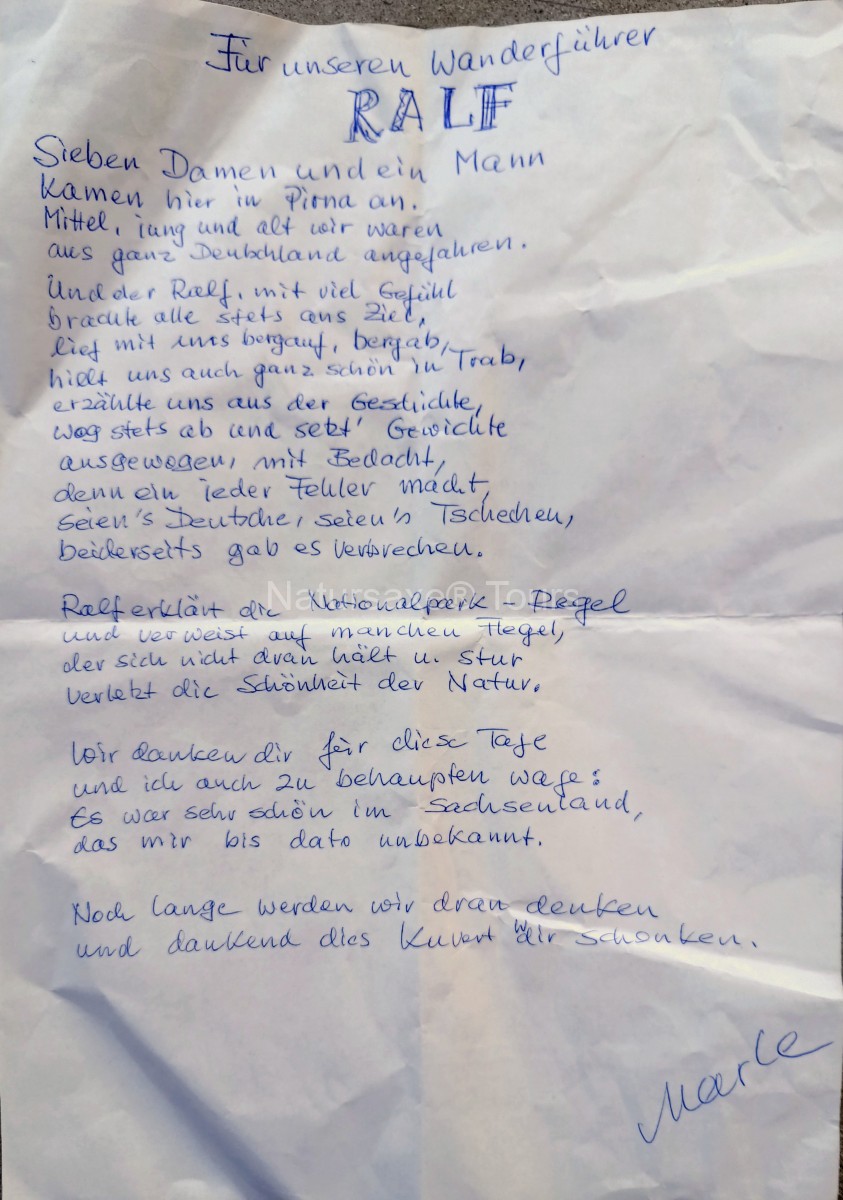 Für unseren Wanderführer
RALF
Sieben Damen und ein Mann
Kamen hier in Pirna an.
Mittel, jung und alt wir waren
aus ganz Deutschland angefahren.
Und der Ralf, mit viel Gefühl
brachte alle stets ans Ziel,
lief mit uns bergauf, bergab,
hielt uns auch ganz schön in Trab,
erzählte uns aus der Geschichte,
wog stets ab und setzt' Gewichte
ausgewogen, mit Bedacht,
denn ein jeder Fehler macht,
seien's Deutsche, seien's Tschechen,
beiderseits gab es Verbrechen.
Natursaxe® Tours
Ralf erklärt die Nationalpark-Regel
und verweist auf manchen Flegel,
der sich nicht dran hält u. stur
verletzt die Schönheit der Natur.
Wir danken dir für diese Tage
und ich auch zu behaupten wage:
Es war sehr schön im Sachsenland,
das mir bis dato unbekannt.
Noch lange werden wir dran denken
und dankend dies Kuvert dir schenken.
Marle